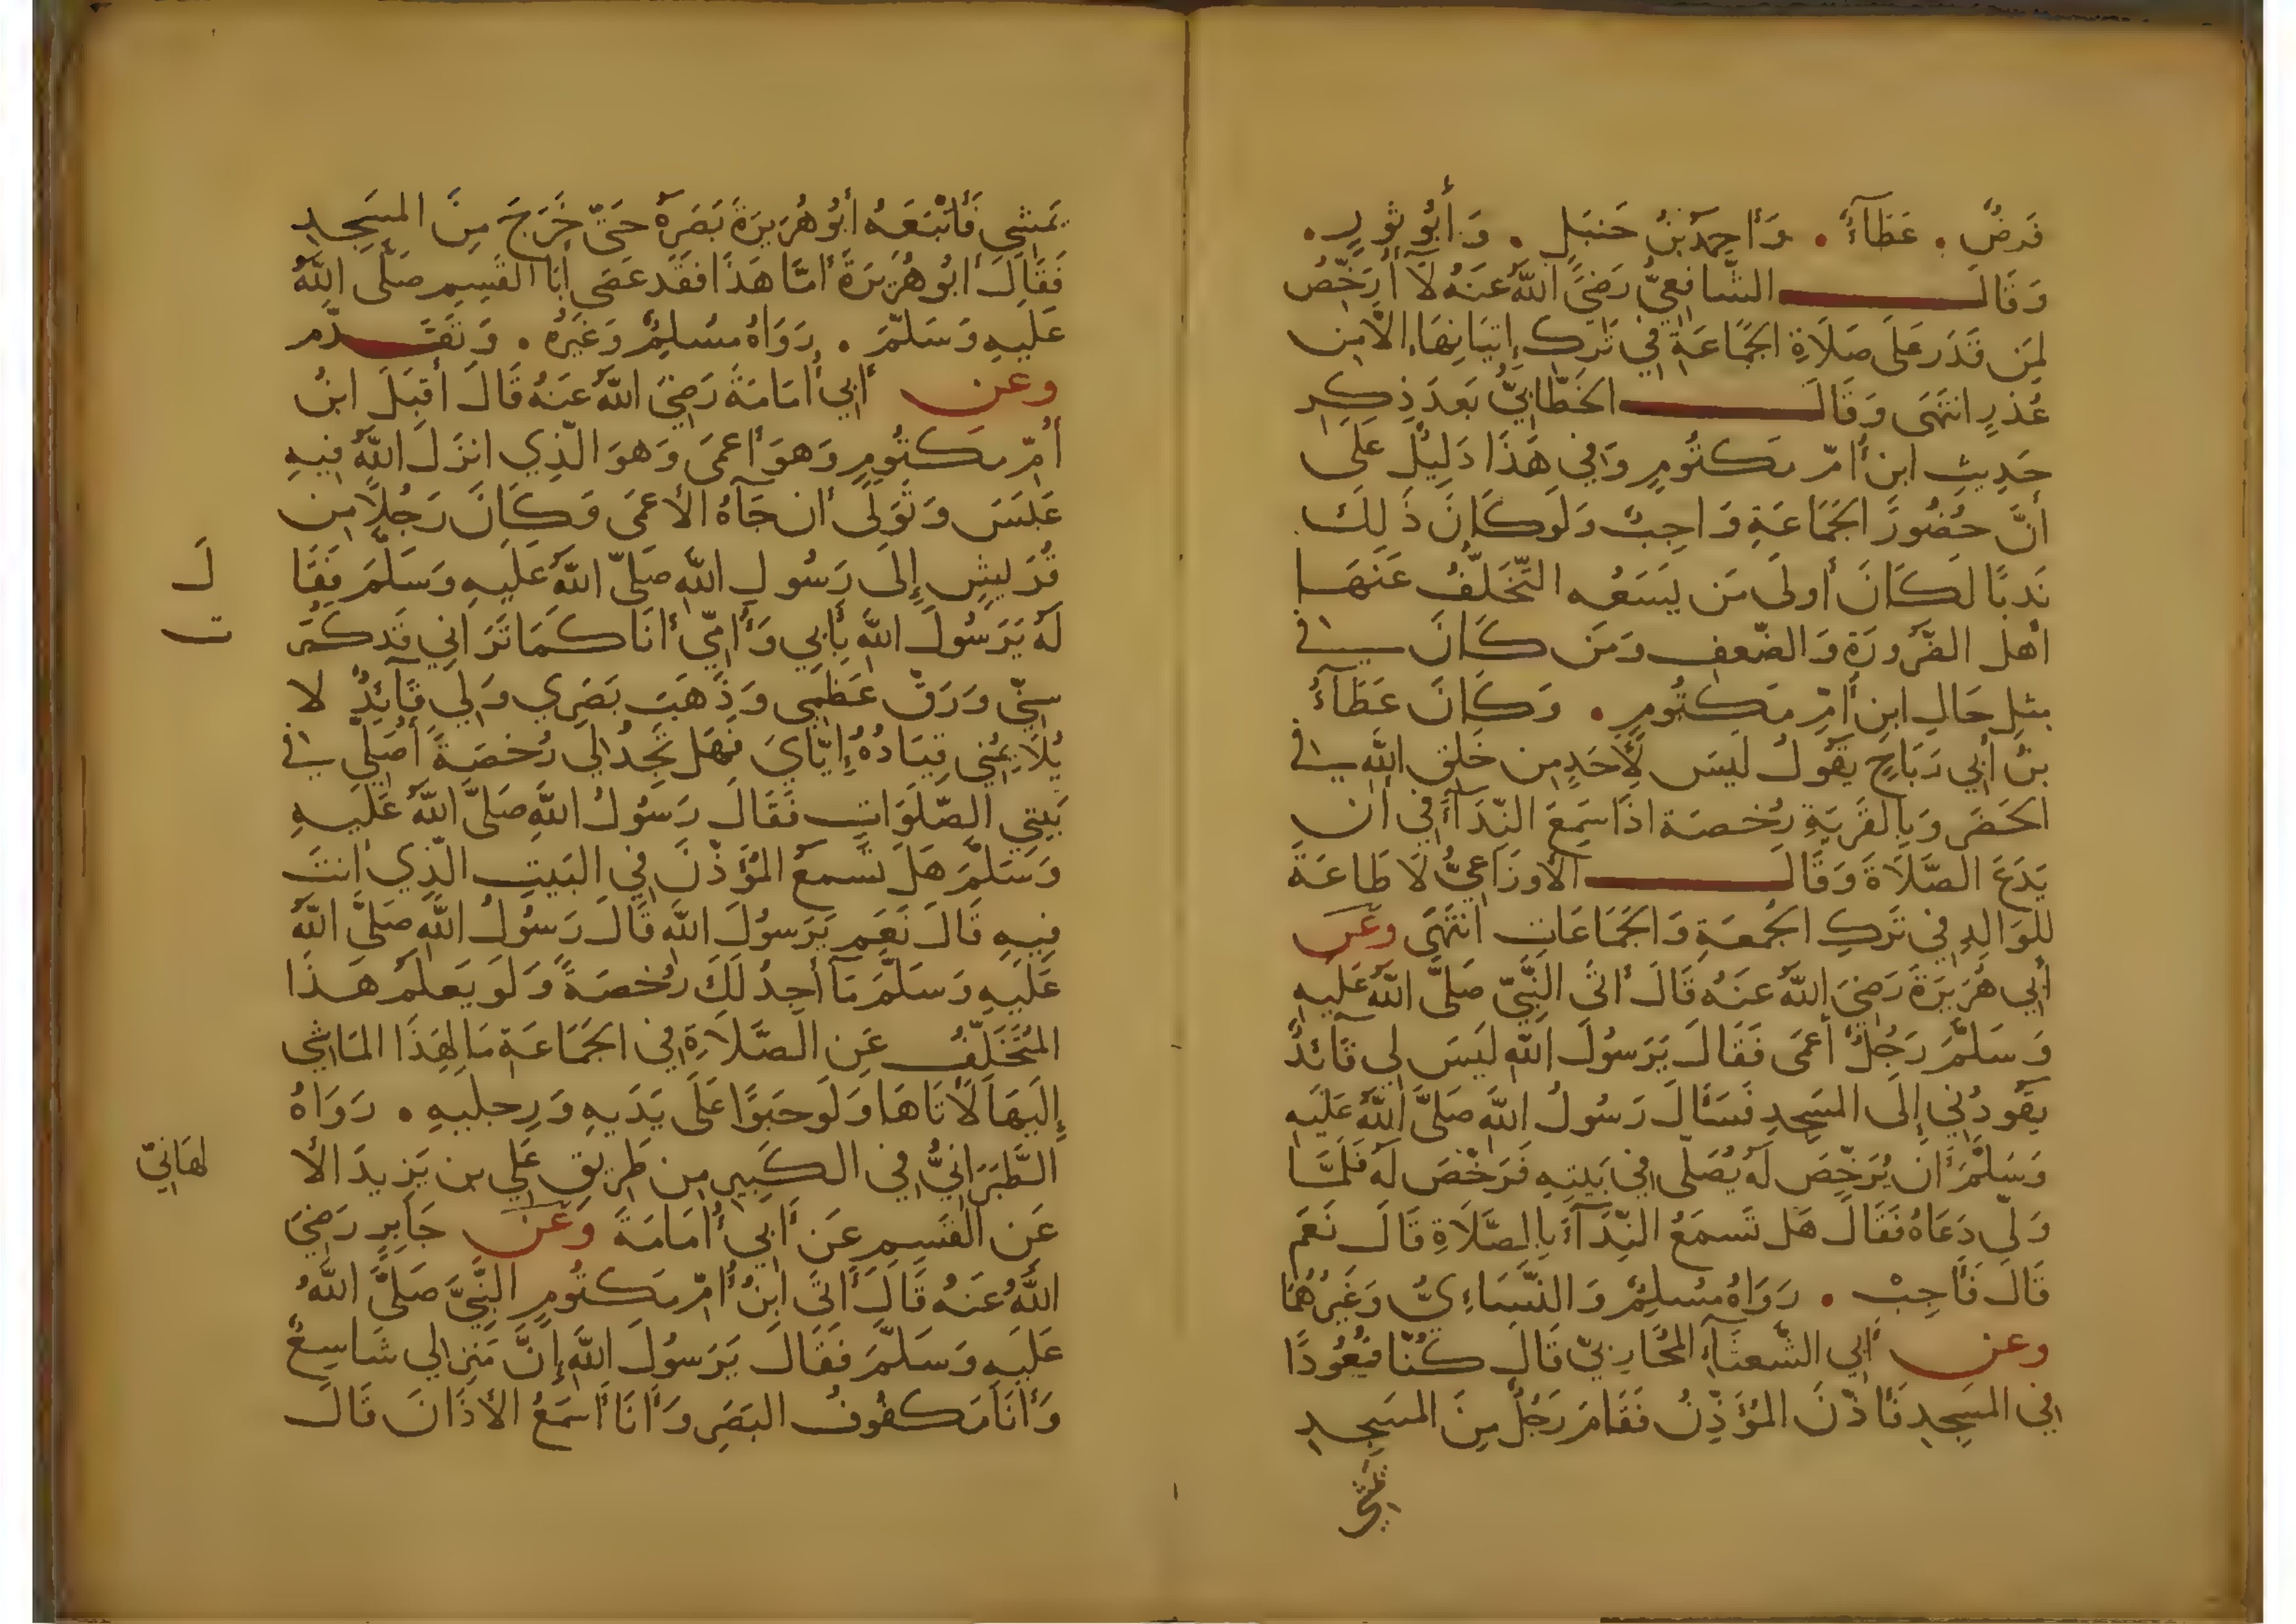 فَرضٌ . عَطَآءٌ . وَأَحمَدُ بنُ حَنبَلٍ . وَأَبُو ثَورٍ .
وَقَالَ الشَّافِعِيُّ رَضِيَ اللَّهُ عَنهُ لَآ أُرَخِّصُ
لِمَن قَدَرَ عَلَى صَلَاةِ الجَمَاعَةِ فِي تَركِ إِتيَانِهَا إِلَّا مِن
عُذرٍ انتَهَى وَقَالَ الخَطَّابِيُّ بَعدَ ذِكرِ
حَدِيثِ ابنِ أُمِّ مَكتُومٍ وَفِي هَذَا دَلِيلٌ عَلَى
أَنَّ حُضُورَ الجَمَاعَةِ وَاجِبٌ وَلَو كَانَ ذَلِكَ
نَدبًا لَكَانَ أَولَى مَن يَسَعُه التَّخَلُّفُ عَنهَا
أَهل الضَّرُورَةِ وَالضَّعفِ وَمَن كَانَ فِي
مِثلِ حَالِ ابنِ أُمِّ مَكتُومٍ . وَكَانَ عَطَآءُ
بنُ أَبِي رَبَاحٍ يَقُولُ لَيسَ لِأَحَدٍ مِن خَلقِ اللَّهِ فِي
الحَضَرِ وَبِالقَريَةِ رُخصَة اذَا سَمِعَ النِّدَآءَ فِي أَن
يَدَعَ الصَّلَاةَ وَقَالَ الأَوزَاعِيُّ لَا طَاعَةَ
لِلوَالِدِ فِي تَركِ الجُمعَةِ وَالجَمَاعَاتِ انتَهَى وَعَن
أَبِي هُرَيرَةَ رَضِيَ اللَّهُ عَنهُ قَالَ أَتَى النَّبِيَّ صَلَّى اللَّهُ عَلَيهِ
وَسَلَّمَ رَجُلٌ أَعمَى فَقَالَ يَرَسُولَ اللَّهِ لَيسَ لِي قَآئِدٌ
يَقُودُنِي إِلَى المَسجِدِ فَسَأَلَ رَسُولُ اللَّهِ صَلَّى اللَّهُ عَلَيهِ
وَسَلَّمَ أَن يُرَخِّصَ لَهُ يُصَلِّي فِي بَيتِهِ فَرَخَّصَ لَهُ فَلَمَّا
وَلَّى دَعَاهُ فَقَالَ هَل تَسمَعُ النِّدَآءَ بِالصَّلَاةِ قَالَ نَعَم
قَالَ فَأَجِبْ . رَوَاهُ مُسلِمٌ وَالنَّسَاءِيُّ وَغَيرُهُمَا
وعن أَبِي الشَّعثَآءِ المُحَارِبِيِّ قَالَ كُنَّا قُعُودًا
فِي المَسجِدِ فَأَذَّنَ المُؤَذِّنُ فَقَامَ رَجُلٌ مِنَ المَسجِدِ
يَمشِي
يَمشِي فَأَتبَعَهُ أَبُو هُرَيرَةَ بَصَرَهُ حَتَّى خَرَجَ مِنَ المَسجِدِ
فَقَالَ أَبُو هُرَيرَةَ أَمَّا هَذَا فَقَد عَصَى أَبَا القَسِمِ صَلَّى اللَّهُ
عَلَيهِ وَسَلَّمَ . رَوَاهُ مُسلِمٌ وَغَيرُهُ . وَتَقَدَّم
وعن أَبِي أُمَامَةَ رَضِيَ اللَّهُ عَنهُ قَالَ أَقبَلَ ابنُ
أُمِّ مَكتُومٍ وَهوَ أَعمَى وَهوَ الَّذِي انزَلَ اللَّهُ فِيهِ
عَبَسَ وَتَوَلَّى أَن جَآءَهُ الأَعمَى وَكَانَ رَجُلًا مِن
قُرَيشٍ إِلَى رَسُولِ اللَّهِ صَلَّى اللَّهُ عَلَيهِ وَسَلَّمَ فَقَا
لَ
لَهُ يَرَسُولَ اللَّهِ بِأَبِي وَأُمِّي أَنَا كَمَا تَرَانِي قَد كَبُرَ
ت
سِنِّي وَرَقَّ عَظمِي وَذَهَبَ بَصَرِي وَلِي قَآئِدٌ لَا
يُلَايِمُنِي قِيَادُهُ إِيَّايَ فَهَل تَجِدُ لِي رُخصَةً أُصَلِّي فِي
بَيتِي الصَّلَوَاتِ فَقَالَ رَسُولُ اللَّهِ صَلَّى اللَّهُ عَلَيهِ
وَسَلَّمَ هَل تَسمَعُ المُؤَذِّنَ فِي البَيتِ الَّذِي أَنتَ
فِيهِ قَالَ نَعَم يَرَسُولَ اللَّهِ قَالَ رَسُولُ اللَّهِ صَلَّى اللَّهُ
عَلَيهِ وَسَلَّمَ مَآ أَجِدُ لَكَ رُخصَةً وَلَو يَعلَمُ هَذَا
المُتَخَلِّفُ عَنِ الصَّلَاةِ فِي الجَمَاعَةِ مَا لِهَذَا المَاشِي
إِلَيهَا لَأَتَاهَا وَلَو حَبوًا عَلَى يَدَيهِ وَرِجلَيهِ . رَوَاهُ
الطَّبَرَانِيُّ فِي الكَبِيرِ مِن طَرِيقِ عَلِي بن يَزِيدَ الأَ
لهَانِيّ
عَنِ القَسِمِ عَن أَبِي أُمَامَةَ وَعَن جَابِرٍ رَضِيَ
اللَّهُ عَنهُ قَالَ أَتَى ابنُ أُمِّ مَكتُومٍ النَّبِيَّ صَلَّى اللَّهُ
عَلَيهِ وَسَلَّمَ فَقَالَ يَرَسُولَ اللَّهِ إِنَّ مَنزِلِي شَاسِعٌ
وَأَنَا مَكفُوفُ البَصَرِ وَأَنَا أَسمَعُ الأَذَانَ قَالَ